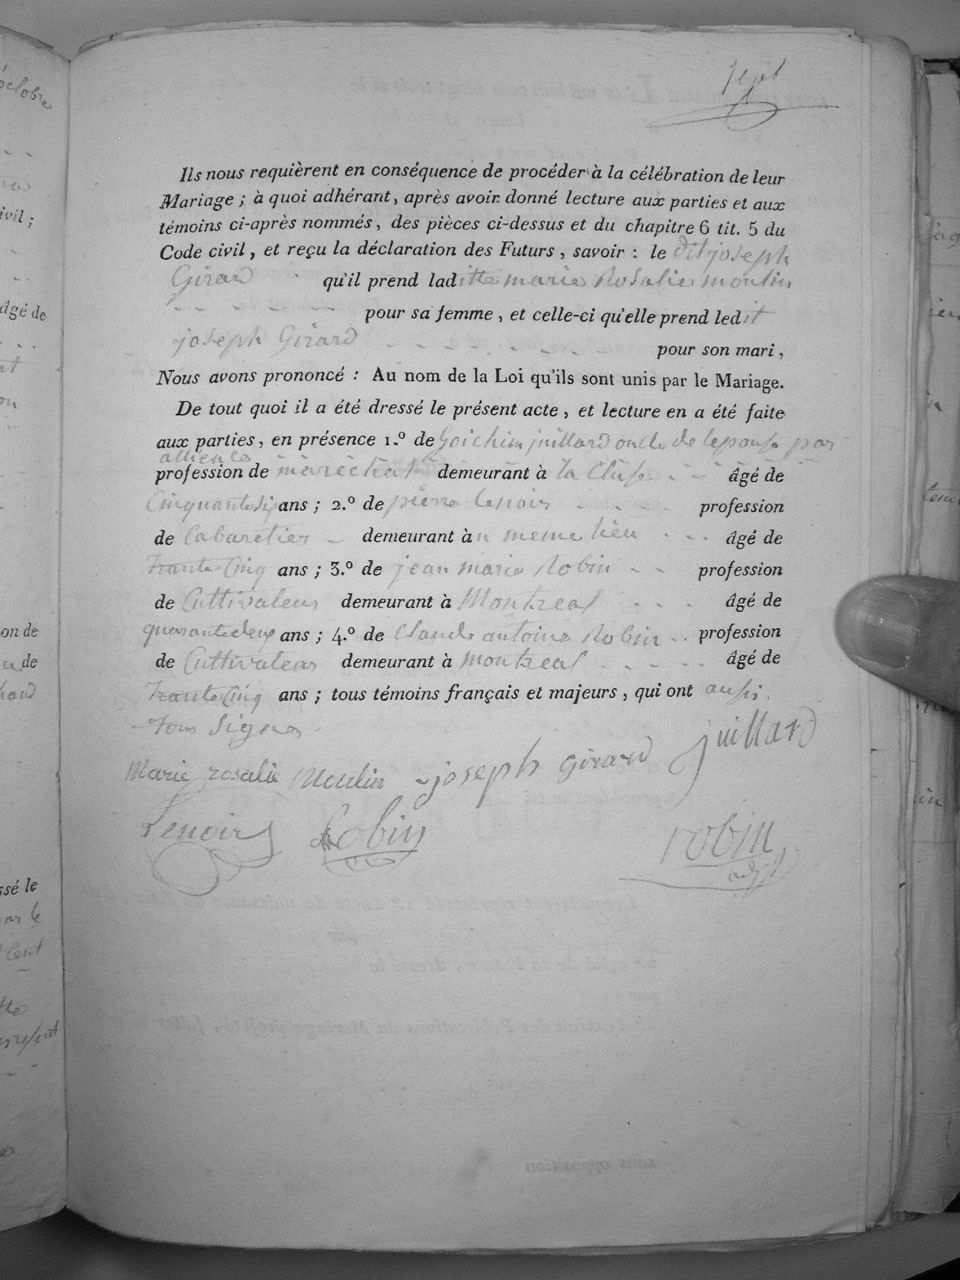 Sept
Ils nous requièrent en conséquence de procéder à la célébration de leur
Mariage ; à quoi adhérant, après avoir donné lecture aux parties et aux
témoins ci-après nommés, des pièces ci-dessus et du chapitre 6 tit. 5 du
Code civil, et reçu la déclaration des Futurs, savoir : le dit joseph
Girard qu'il prend laditte marie Rosalie moulin
pour sa femme, et celle-ci qu'elle prend ledit
joseph Girard pour son mari,
Nous avons prononcé : Au nom de la Loi qu'ils sont unis par le Mariage.
De tout quoi il a été dressé le présent acte, et lecture en a été faite
aux parties, en présence 1.º de juillard oncle de lepouse par
allience
profession de maréchal demeurant à la Cluse âgé de
Cinquantesix ans ; 2.º de pierre Lenoir profession
de Cabaretier demeurant au meme lieu âgé de
Trante Cinq ans ; 3.º de jean marie Robin profession
de Cultivateur demeurant à Montreal âgé de
quarantedeux ans ; 4.º de Claude antoine Robin profession
de Cultivateur demeurant à montreal âgé de
Trante Cinq ans ; tous témoins français et majeurs, qui ont aussi
Tous Signes
Marie rosalie Moulin joseph girard juillard
Lenoir Robin robin
adjt
octobre
civil ;
âgé de
on de
de
ssé le
par le
Cent